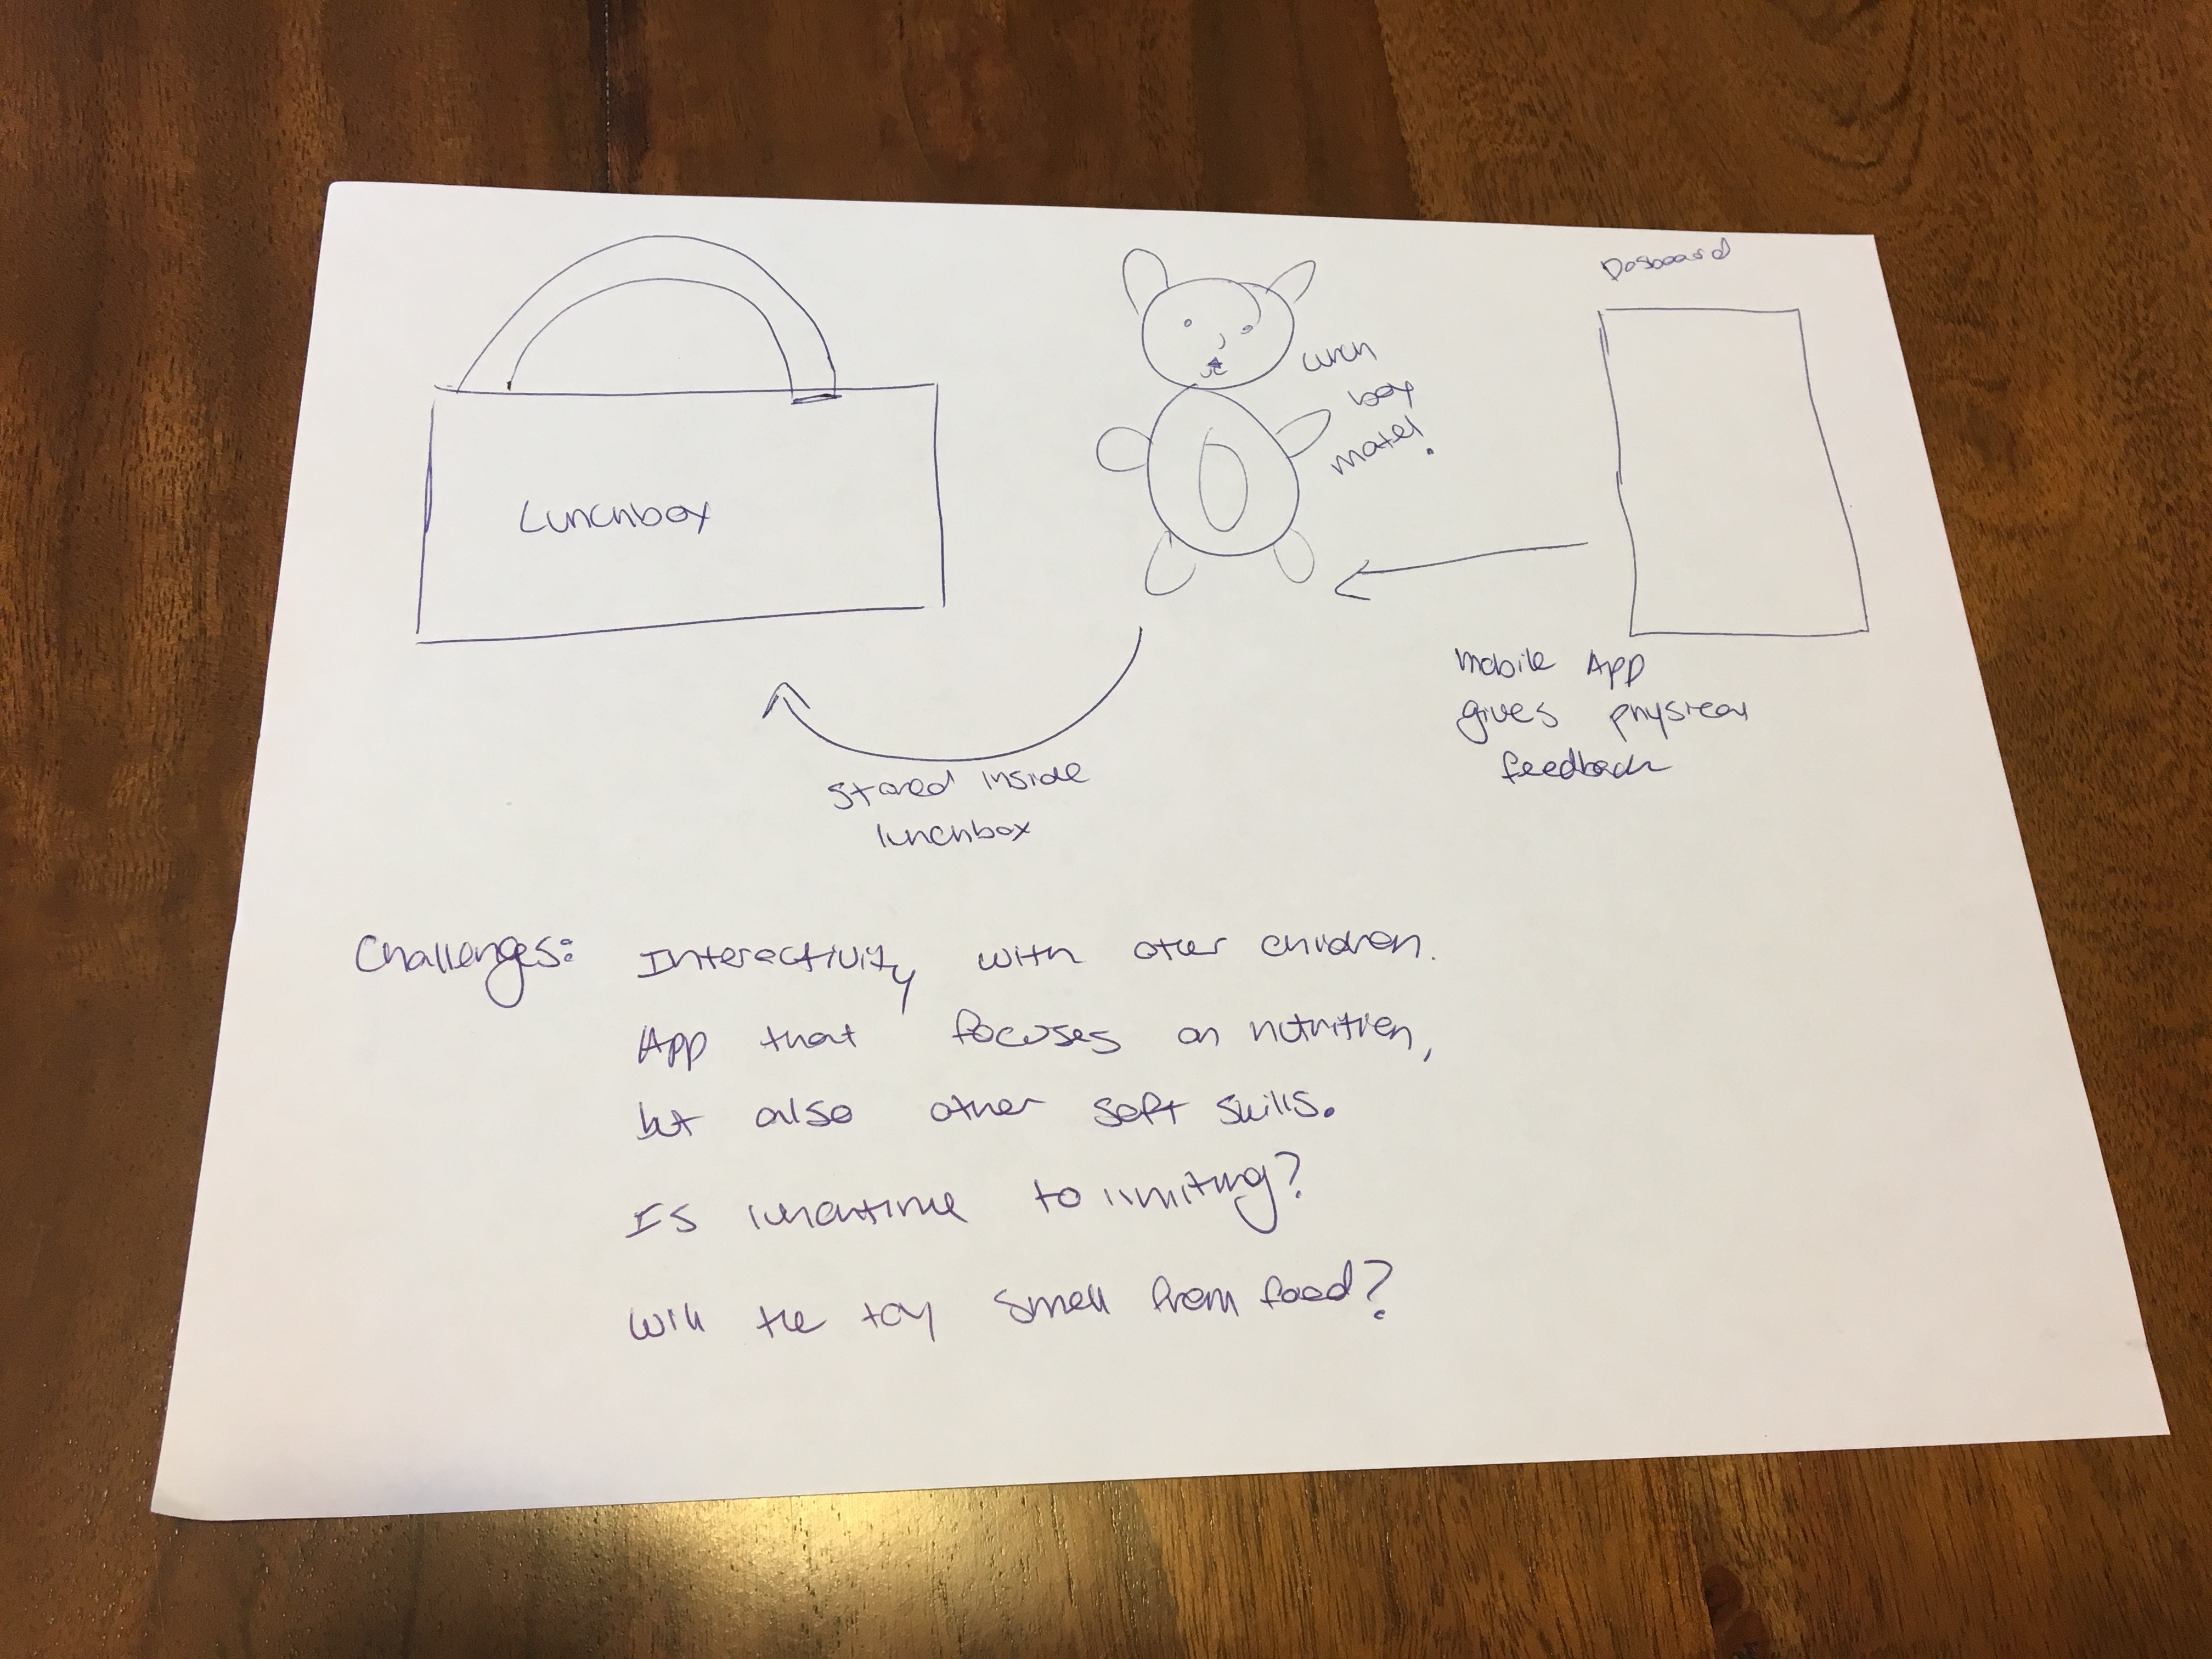 Dasboard
Lunch
box
mate!
Lunchbox
Mobile App
gives physical
feedback
stored inside
lunchbox
Challenges: Interactivity with other children.
App that focuses on nutrition,
but also other soft skills.
Is lunchtime to limiting?
Will the toy smell from food?